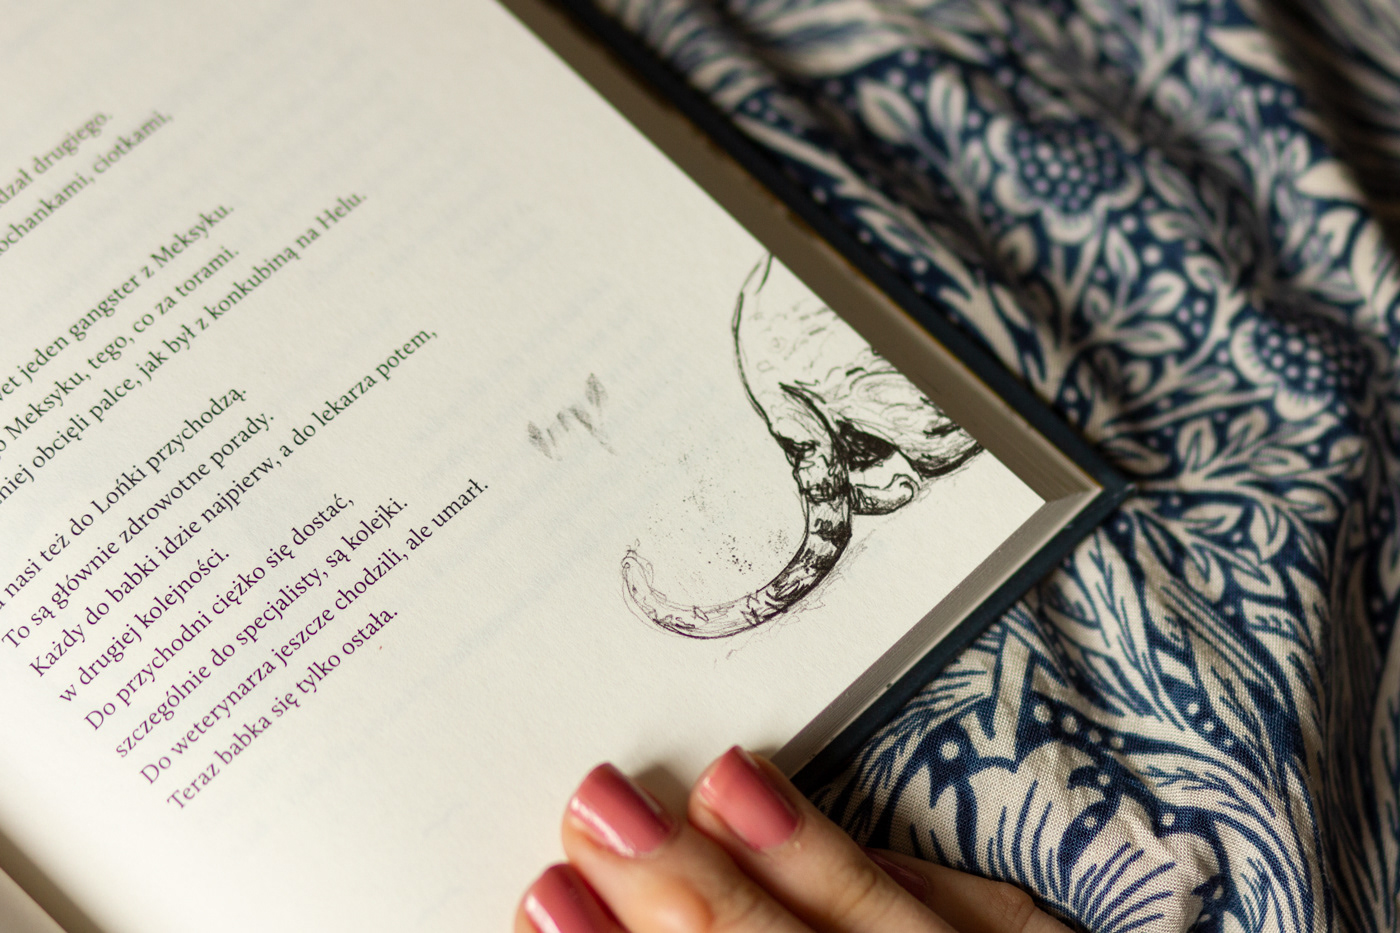 drugiego.
ciotkami,
jeden gangster z Meksyku.
Meksyku, tego, co za torami.
obcięli palce, jak był z konkubiną na Helu.
nasi też do Lońki przychodzą.
To są głównie zdrowotne porady.
Każdy do babki idzie najpierw, a do lekarza potem,
w drugiej kolejności.
Do przychodni ciężko się dostać,
szczególnie do specjalisty, są kolejki.
Do weterynarza jeszcze chodzili, ale umarł.
Teraz babka się tylko ostała.